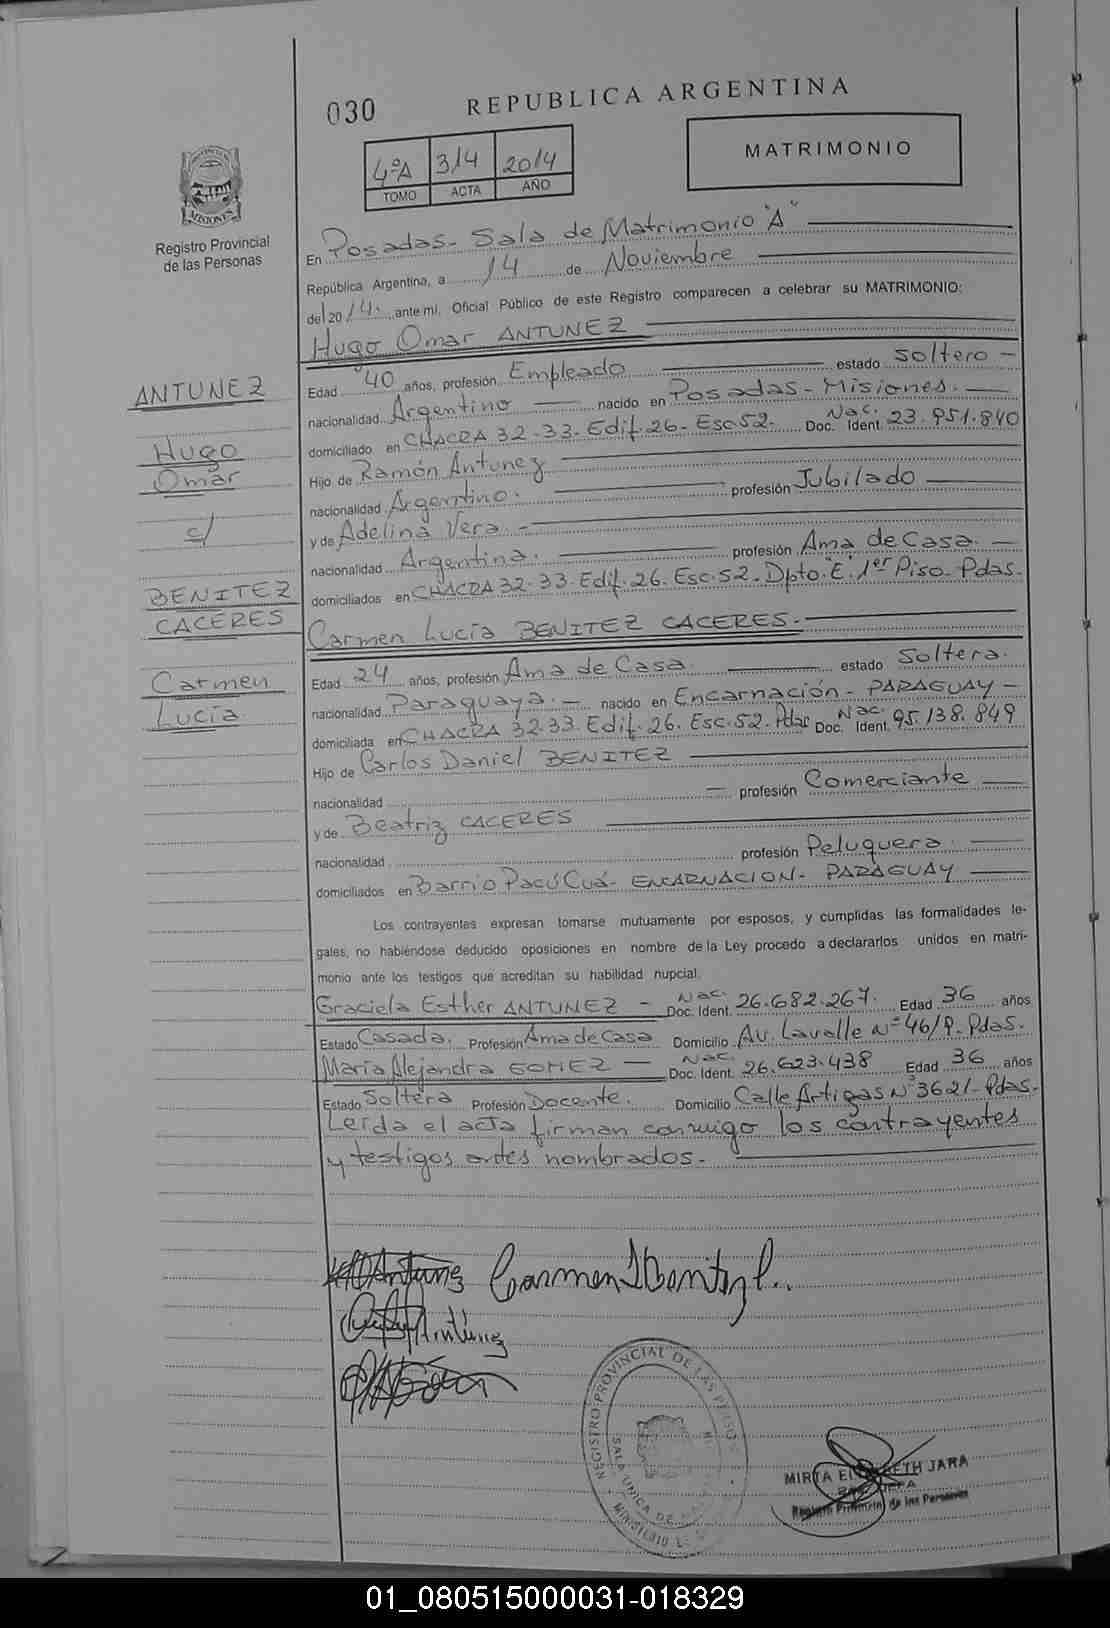 030
REPUBLICA ARGENTINA
4ºA 314 2014
TOMO ACTA AÑO
MATRIMONIO
MISIONES
Registro Provincial
de las Personas
En Posadas - Sala de Matrimonio "A"
República Argentina, a 14 de Noviembre
del 2014. ante mi, Oficial Público de este Registro comparecen a celebrar su MATRIMONIO:
Hugo Omar ANTUNEZ
Edad 40 años, profesión Empleado estado soltero -
nacionalidad Argentino nacido en Posadas - Misiones.
domiciliado en CHACRA 32-33. Edif. 26 - Esc 52. Doc. Nac. Ident. 23.951.840
Hijo de Ramón Antunez
nacionalidad Argentino. profesión Jubilado
y de Adelina Vera -
nacionalidad Argentina. profesión Ama de Casa.
domiciliados en CHACRA 32-33. Edif. 26. Esc. 52 - Dpto. "E". 1er Piso - Pdas.
Carmen Lucía BENITEZ CACERES.
Edad 24 años, profesión Ama de Casa. estado Soltera.
nacionalidad Paraguaya - nacido en Encarnación - PARAGUAY -
domiciliada en CHACRA 32-33. Edif. 26. Esc. 52. Pdas Doc. Nac. Ident. 95.138.849
Hijo de Carlos Daniel BENITEZ
nacionalidad profesión Comerciante
y de Beatriz CACERES
nacionalidad profesión Peluquera.
domiciliados en Barrio Pacú Cuá - ENCARNACION - PARAGUAY
Los contrayentes expresan tomarse mutuamente por esposos, y cumplidas las formalidades le-
gales, no habiéndose deducido oposiciones en nombre de la Ley procedo a declararlos unidos en matri-
monio ante los testigos que acreditan su habilidad nupcial.
Graciela Esther ANTUNEZ - Doc. Nac. Ident. 26.682.267. Edad 36 años
Estado Casada. Profesión Ama de Casa Domicilio Av. Lavalle Nº Pdas.
María Alejandra GOMEZ - Doc. Nac. Ident. 26.623.438 Edad 36 años
Estado Soltera Profesión Docente. Domicilio Calle Artigas Nº 3621 - Pdas.
Leída el acta firman conmigo los contrayentes
y testigos antes nombrados.
ANTUNEZ
Hugo
Omar
c/
BENITEZ
CACERES
Carmen
Lucía
Antunez Carmen L Benitez C.
Antúnez
REGISTRO PROVINCIAL DE LAS
SALA UNICA DE
MINISTERIO
MIRTA JARA
Registro Provincial de las Personas
01_080515000031-018329